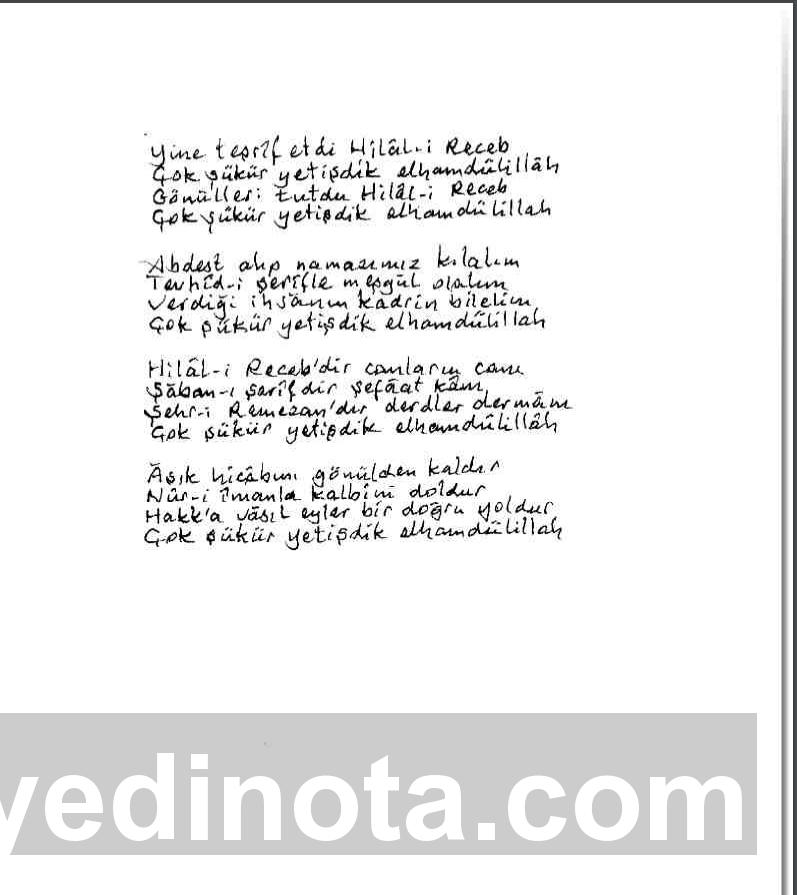 Yine teşrîf etdi Hilâl-i Receb
Çok şükür yetişdik elhamdülillâh
Gönülleri tutdu Hilâl-i Receb
Çok şükür yetişdik elhamdülillah
Abdest alıp namazımız kılalım
Tevhîd-i şerîfle meşgûl olalım
Verdiği ihsânın kadrin bilelim
Çok şükür yetişdik elhamdülillah
Hilâl-i Receb'dir canların canı
Şâban-ı şerîfdir şefâat kânı
Şehr-i Ramazan'dır derdler dermânı
Çok şükür yetişdik elhamdülillâh
Âşık hicâbını gönülden kaldır
Nûr-i îmanla kalbini doldur
Hakk'a vâsıl eyler bir doğru yoldur
Çok şükür yetişdik elhamdülillah
yedinota.com